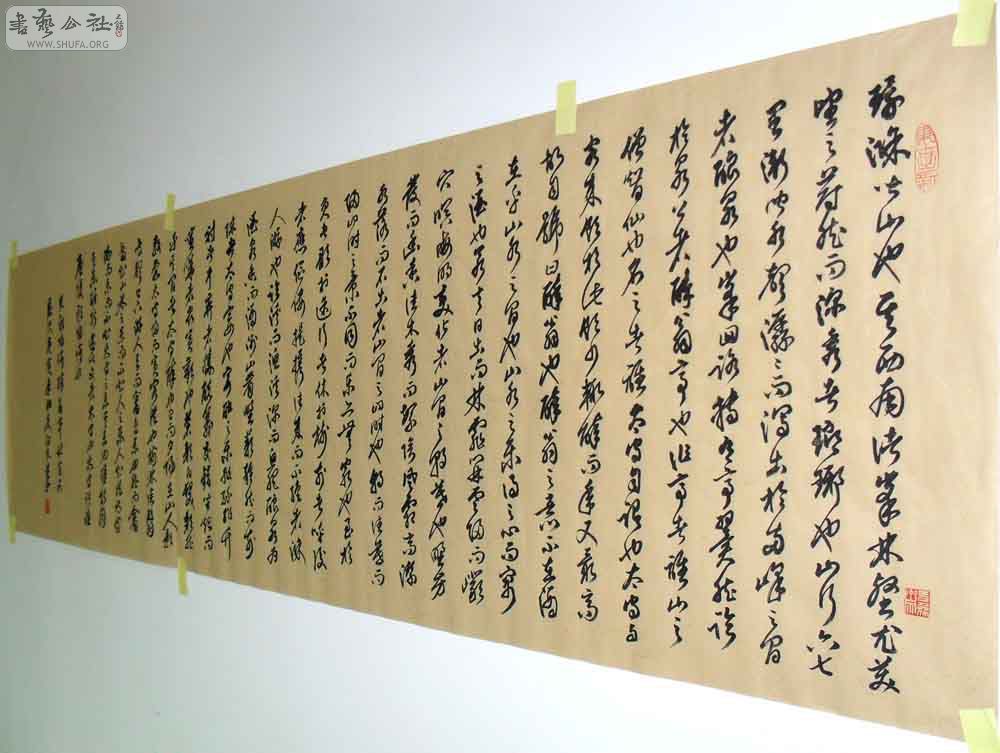 書藝公社
WWW.SHUFA.ORG
環滁皆山也其西南諸峯林壑尤美
望之蔚然而深秀者瑯琊也山行六七
里漸聞水聲潺〻而瀉出於兩峰之間
者釀泉也峯回路轉有亭翼然臨
於泉上者醉翁亭也作亭者誰山之
僧智仙也名之者誰太守自謂也太守與
客來飲於此飲少輒醉而年又最高
故自號曰醉翁也醉翁之意不在酒
在乎山水之間也山水之樂得之心而寓
之酒也若夫日出而林霏開雲歸而巖
穴暝晦明變化者山間之朝暮也野芳
發而幽香佳木秀而繁陰風霜高潔
水落而石出者山間之四時也朝而往暮而
歸四時之景不同而樂亦無窮也至於
負者歌於途行者休於樹前者呼後
者應傴僂提攜往來而不絕者滁
人游也臨溪而漁溪深而魚肥釀泉為
酒泉香而酒洌山肴野蔌雜然而前
陳者太守宴也宴酣之樂非絲非竹
射者中弈者勝觥籌交錯坐起而
諠譁者眾賓歡也蒼顏白髮頹然
乎其間者太守醉也已而夕陽在山人影
散亂太守歸而賓客從也樹林陰翳
鳴聲上下遊人去而禽鳥樂也然而禽
鳥知山林之樂而不知人之樂人知從太守
遊而樂而不知太守之樂其樂也醉能同
其樂醒能述以文者太守也太守謂誰
廬陵歐陽修也